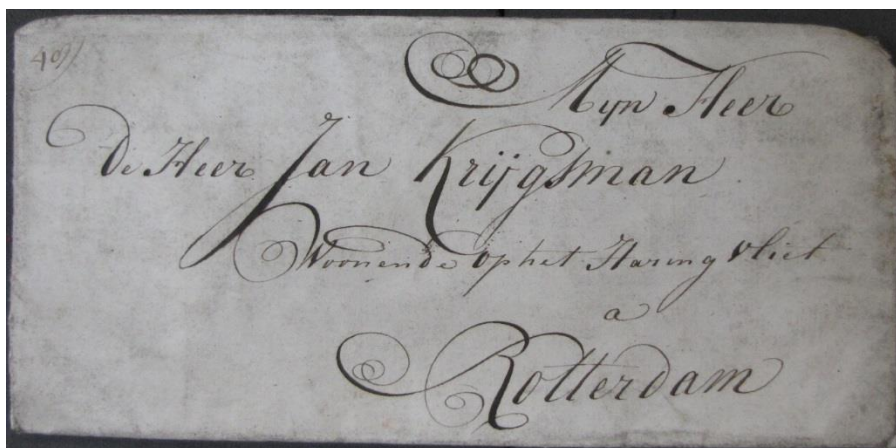 Mijn Heer
De Heer Jan Krijgsman
Woonende op het Haring vliet
a
Rotterdam